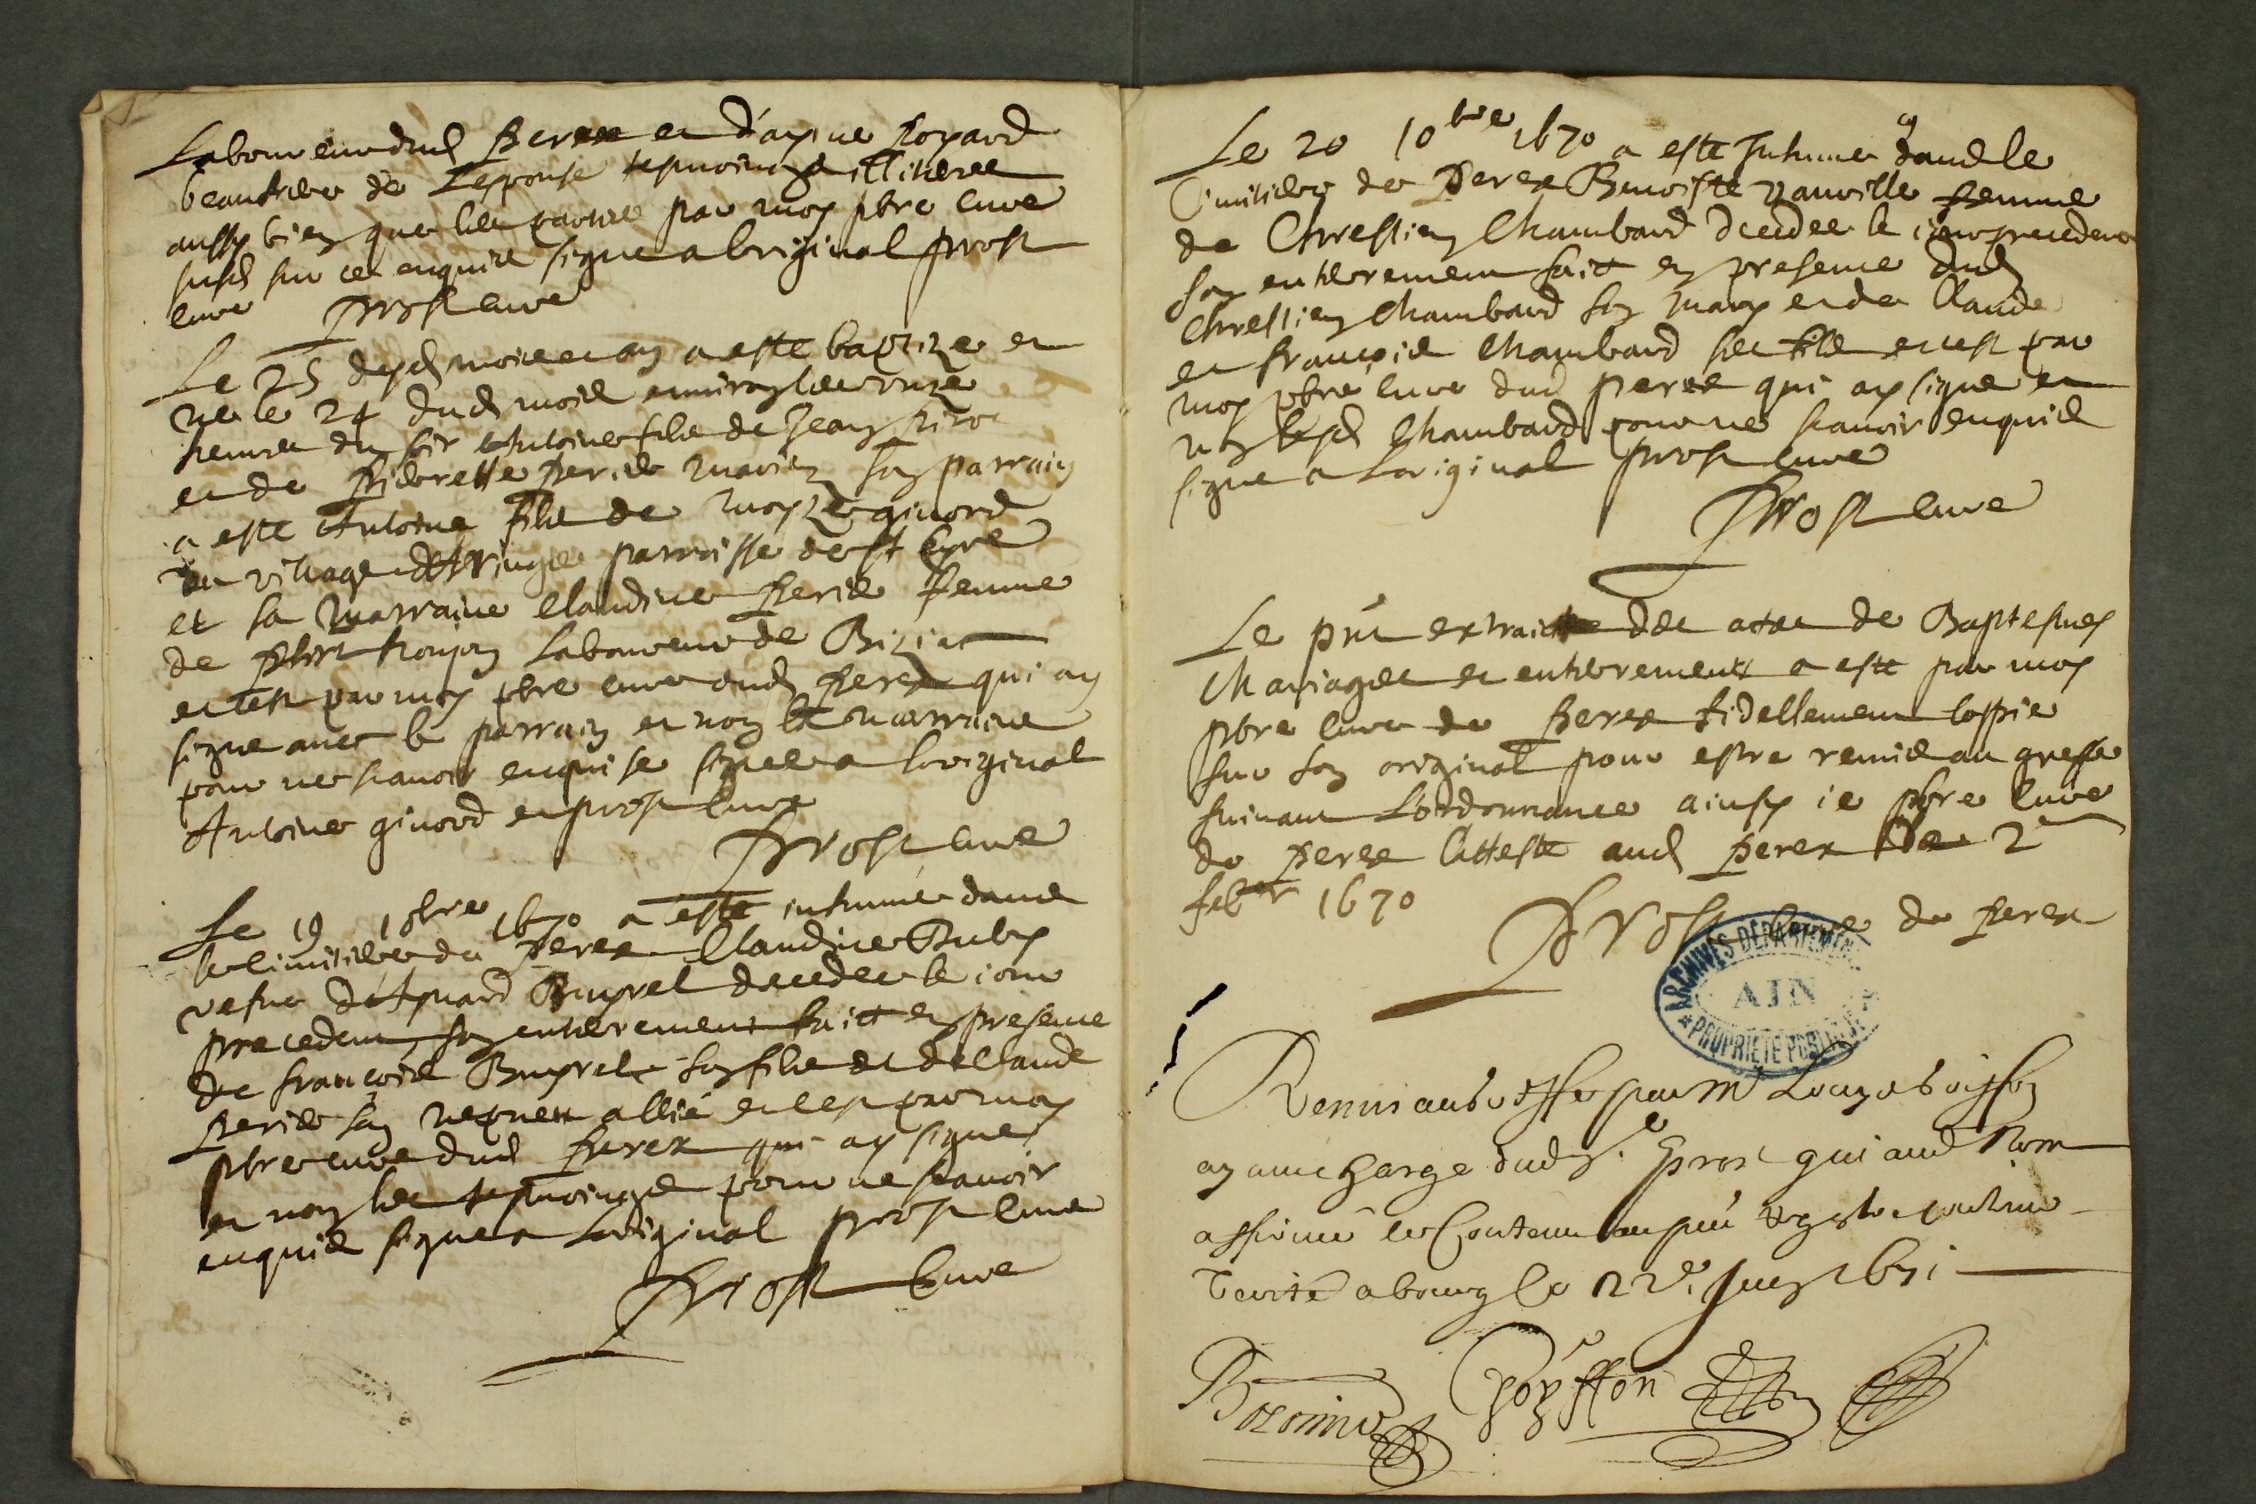 Laboureur dud Perex et d'ayme Royard
beaufrere de Lespouse tesmoings illiteres
aussy bien que les parties par moy pbre cure
susd sur ce enquis signe a loriginal Prost
cure Prost cure
Le 25 desd mois et an a este baptize et
ne le 24 dud mois environ les onze
heures du soir Anthoine fils de Jean
et de Pierrette Peris maries son parrain
a este Antoine fils de Moyze givord
du village paroisse de St Cyre
et sa marraine Claudine Peris femme
de Laboureur de Biziat
et cest par moy pbre cure dud Perex qui ay
signe avec le parrain et non la marraine
pour ne scavoir enquise signe a loriginal
Antoine givord et Prost cure
Prost cure
Le 19 10bre 1670 a este inhumée dans
le cimitiere de Perex Claudine Buby
vefue d'Aynard Buyrel decedee le jour
precedent son enterrement faict en presence
de françois Buyrel son fils et de Claude
Peris son nepveu allié et cest par moy
pbre cure dud Perex qui ay signe
et non les tesmoings pour ne scavoir
enquis signe a loriginal Prost cure
Prost Cure
Le 20 10bre 1670 a este inhumee dans le
Cimitiere de Perex Benoiste femme
de Chrestien Chambard decedee le jour precedent
son enterrement fait en presence dud
Chrestien Chambard son mary et de Claude
et françois Chambard ses fils et cest par
moy pbre cure dud Perex qui ay signe et
non lesd Chambard pour ne scavoir enquis
signe a Loriginal Prost cure
Prost cure
Le pnt extraict des actes de Baptesmes
Mariages et enterrements a este par moy
pbre cure de Perex fidellement coppié
sur son original pour estre remis au greffe
suivant Lordonnance ainsy ie pbre cure
de Perex Latteste aud Perex le 2
febvr 1670
Prost cure de Perex
ARCHIVES DEPARTEMEN
AIN
PROPRIETE PUBLIQUE
Remis au greffe par Me Louys boisson
ayant charge dud Sr Prost qui aud Nom
affirmé le Contenu au pnt regstre contenir
verité a bourg le 22e 1671